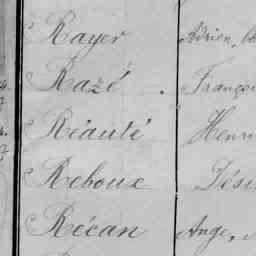 Rayer Adrien,
Razé. Franço
Réauté Henri
Reboux Dési
Récan Ange,